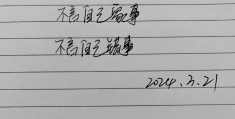 不言自己事
不言自己事
2024.3.21